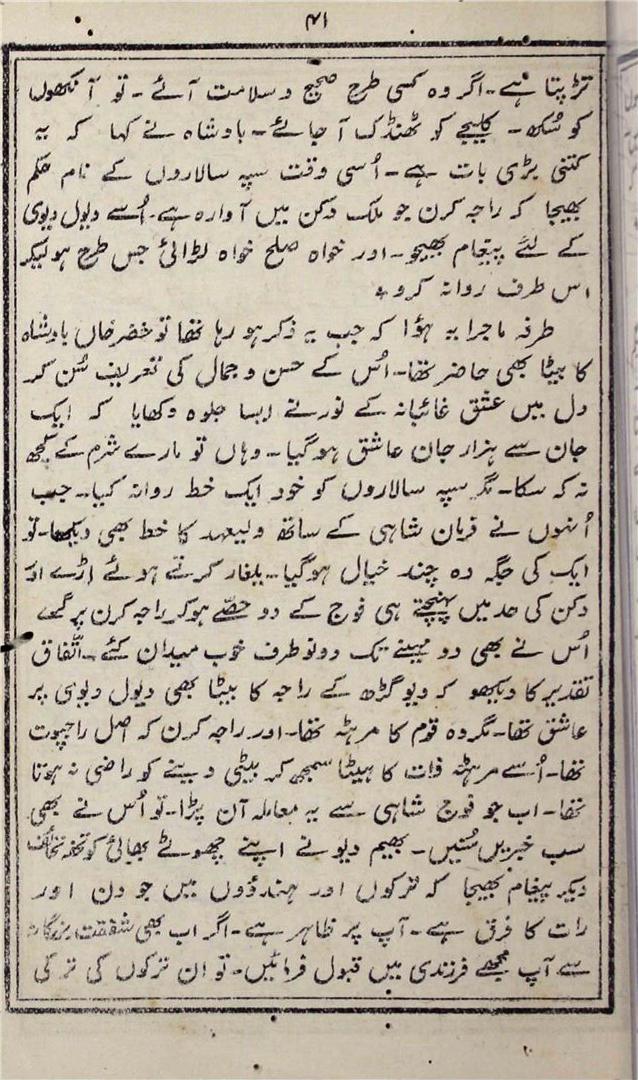 ۴۱
تڑپتا ہے۔ اگر وہ کسی طرح صحیح و سلامت آئے۔ تو آنکھوں
کو سُکھ۔ کلیجے کو ٹھنڈک آ جائے۔ بادشاہ نے کہا کہ یہ
کتنی بڑی بات ہے۔ اُسی وقت سپہ سالاروں کے نام حکم
بھیجا کہ راجہ کرن جو ملک دکن میں آوارہ ہے۔ اُسے دیول دیوی
کے لئے پیغام بھیجو۔ اور خواہ صلح خواہ لڑائی جس طرح ہو لیکر
اس طرف روانہ کرو۔
طرفہ ماجرا یہ ہؤا کہ جب یہ ذکر ہو رہا تھا تو خضر خاں بادشاہ
کا بیٹا بھی حاضر تھا۔ اُس کے حسن و جمال کی تعریف سُن کر
دل میں عشق غائبانہ کے نور نے ایسا جلوہ دکھایا کہ ایک
جان سے ہزار جان عاشق ہو گیا۔ وہاں تو مارے شرم کے کچھ
نہ کہ سکا۔ مگر سپہ سالاروں کو خود ایک خط روانہ کیا۔ جب
اُنہوں نے فرمان شاہی کے ساتھ ولیعہد کا خط بھی دیکھا۔ تو
ایک کی جگہ دہ چند خیال ہو گیا۔ یلغار کرتے ہوئے اڑے اور
دکن کی حد میں پہنچتے ہی فوج کے دو حصّے ہو کر راجہ کرن پر گرے
اُس نے بھی دو مہینے تک دونو طرف خوب میدان کئے۔ اتّفاق
تقدیر کا دیکھو کہ دیو گڑھ کے راجہ کا بیٹا بھی دیول دیوی پر
عاشق تھا۔ مگر وہ قوم کا مرہٹہ تھا۔ اور راجہ کرن کہ اصل راجپوت
تھا۔ اُسے مرہٹہ ذات کا ہیٹا سمجھ کر بیٹی دینے کو راضی نہ ہوتا
تھا۔ اب جو فوج شاہی سے یہ معاملہ آن پڑا۔ تو اُس نے بھی
سب خبریں سُنیں۔ بھیم دیو نے اپنے چھوٹے بھائی کو تحفہ تحائف
دیکر پیغام بھیجا کہ ترکوں اور ہندوؤں میں جو دن اور
رات کا فرق ہے۔ آپ پر ظاہر ہے۔ اگر اب بھی شفقت بزرگانہ
سے آپ مجھے فرزندی میں قبول فرمائیں۔ تو ان ترکوں کی ترکی